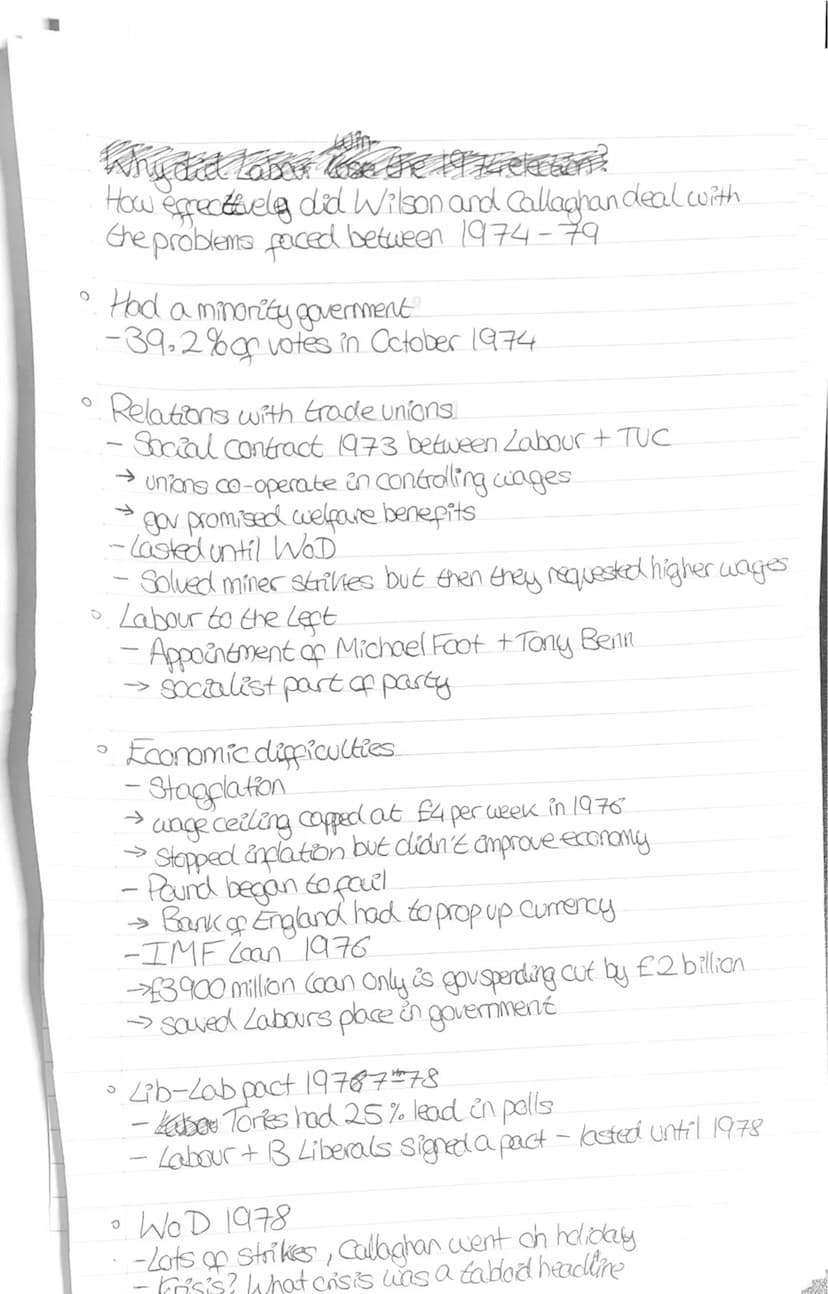 Why did Labour lose the 1974 election?
win
How effectively did Wilson and Callaghan deal with
the problems faced between 1974-79
° Had a minority government
-39.2% of votes in October 1974
° Relations with trade unions
- Social contract 1973 between Labour + TUC
→ unions co-operate in controlling wages
→ gov promised welfare benefits
- Lasted until WoD
- Solved miner strikes but then they requested higher wages
° Labour to the Left
- Appointment of Michael Foot + Tony Benn
→ socialist part of party
° Economic difficulties
- Stagflation
→ wage ceiling capped at £4 per week in 1976
→ stopped inflation but didn't improve economy
- Pound began to fall
→ Bank of England had to prop up currency
- IMF Loan 1976
→ £3900 million loan only is gov spending cut by £2 billion
→ saved Labours place in government
° Lib-Lab pact 1977-78
- Labou Tories had 25% lead in polls
- Labour + 13 Liberals signed a pact - lasted until 1978
° WoD 1978
- Lots of strikes, Callaghan went oh holiday
- Krisis? What crisis was a tabloid headline